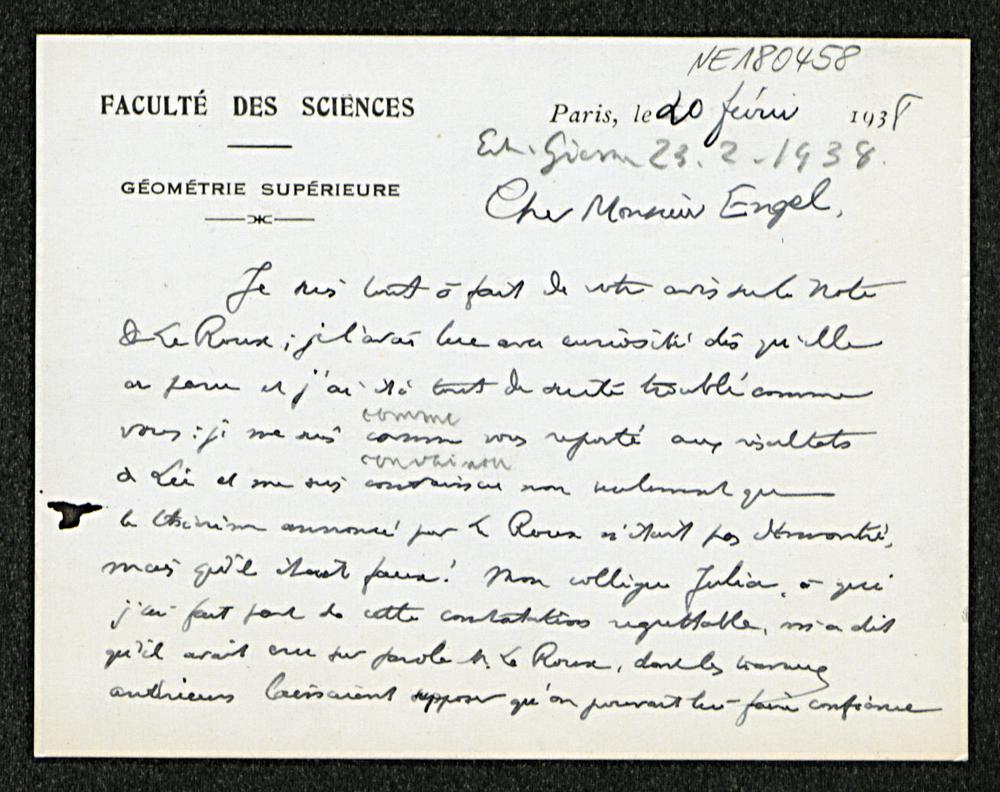 NE180458
FACULTÉ DES SCIENCES
Paris, le 20 février 1938
Giessen 23.2.1938.
GÉOMÉTRIE SUPÉRIEURE
Cher Monsieur Engel,
Je suis tout à fait de votre avis sur la Note
de Le Roux ; je l'avais lue avec curiosité dès qu'elle
a paru et j'ai été tout de suite troublé comme
comme
vous : je me suis comme vous reporté aux résultats
convaincu
de Lie et me suis convaincu non seulement que
le théorème annoncé par Le Roux n'était pas démontré,
mais qu'il était faux ! Mon collègue Julia, à qui
j'ai fait part de cette constatation regrettable, m'a dit
qu'il avait cru sur parole M. Le Roux, dont les travaux
antérieurs laissaient supposer qu'on pouvait lui faire confiance